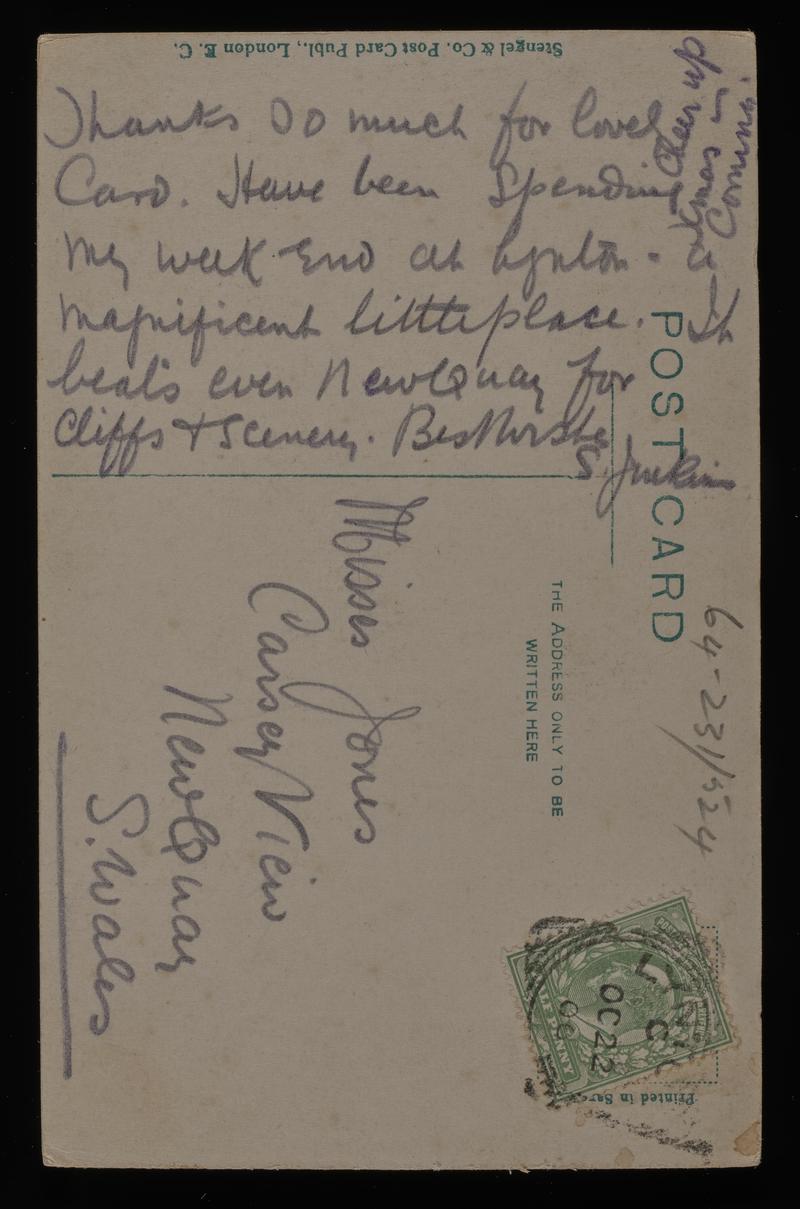 Stengel & Co. Post Card Publ., London E. C.
Thanks So much for lovely
Card. Have been Spending
my week-End at Lynton - a
magnificent little place. It
beats even NewQuay for
Cliffs & Scenery. Best Wishes
S. Jenkins
Cheer up
Coming
POST CARD
THE ADDRESS ONLY TO BE
WRITTEN HERE
64-231/524
Misses Jones
Carsey View
NewQuay
S. Wales
LYN
C
OC 22
Printed in